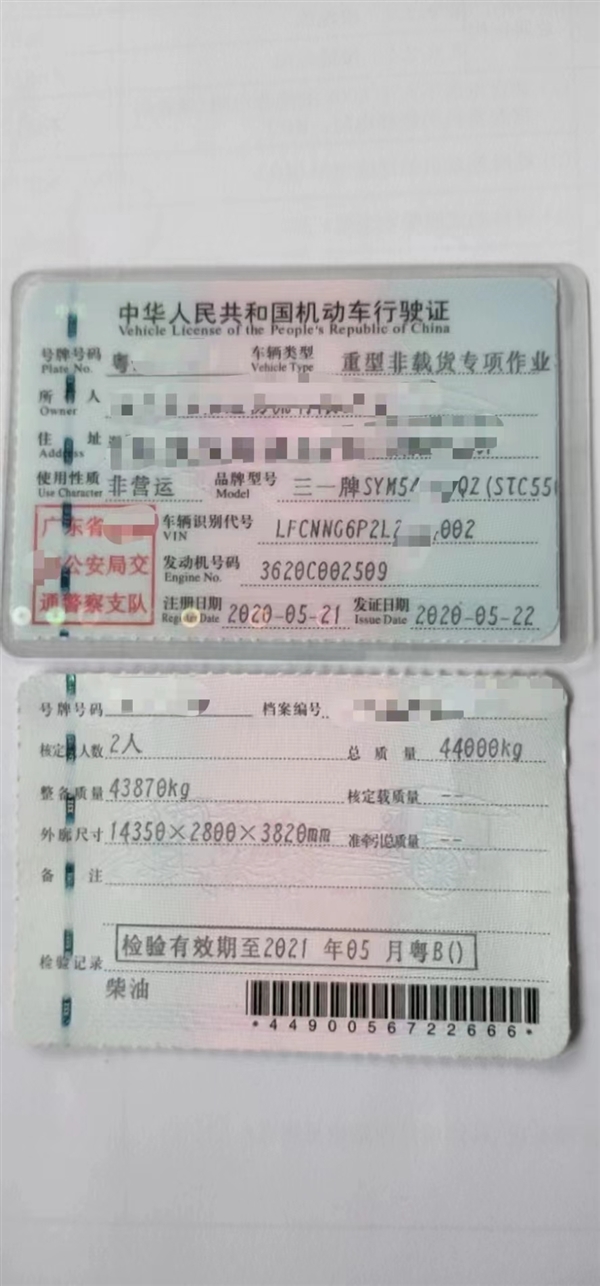 中华人民共和国机动车行驶证
Vehicle License of the People's Republic of China
号牌号码 粤 车辆类型 重型非载货专项作业
Plate No. Vehicle Type
所有人
Owner
住址
Address
使用性质 非营运 品牌型号 三一牌SYM5 Q2(STC550
Use Character Model
广东省 车辆识别代号 LFCNNG6P2L2 002
VIN
公安局交 发动机号码 3620C002509
Engine No.
通警察支队 注册日期 2020-05-21 发证日期 2020-05-22
Register Date Issue Date
号牌号码 档案编号
核定人数 2人 总质量 44000kg
整备质量 43870kg 核定载质量 --
外廓尺寸 14350×2800×3820mm 准牵引总质量 --
备注
检验记录 检验有效期至2021年05月粤B()
柴油
*4490056722666*